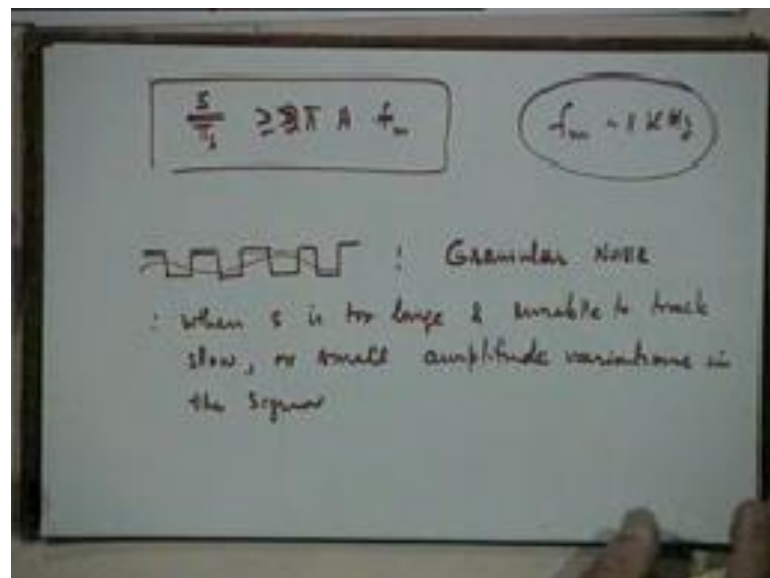 S/Ts ≥ 2π A fm
fm ~ 1 KHz
: Granular Noise
: when s is too large & unable to track
slow, or small amplitude variations in
the signal